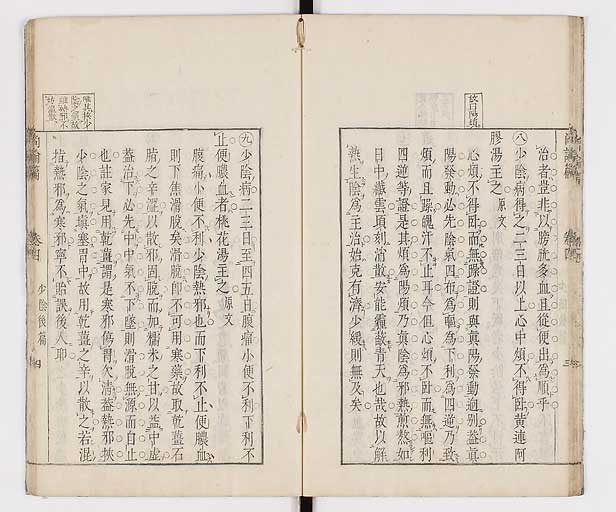 治者豈非以膀胱多血且從便出爲順乎
八少陰病得之二三日以上心中煩不得臥黃連阿
膠湯主之 原文
心煩不得臥而無躁證則與眞陽發動迥別蓋眞
陽發動必先陰氣四布爲嘔爲下利爲四逆乃致
煩而且躁魄汗不止耳今但心煩不臥而無嘔利
四逆等證是其煩爲陽煩乃眞陰爲邪熱煎熬如
日中纖雲頃刻消散安能霾蔽青天也哉故以解
熱生陰爲主治始克有濟少緩則無及矣
九少陰病二三日至四五日腹痛小便不利下利不
止便膿血者桃花湯主之 原文
腹痛小便不利少陰熱邪也而下利不止便膿血
則下焦滑脫矣滑脫卽不可用寒藥故取乾薑石
脂之辛澀以散邪固脫而加糯米之甘以益中虛
蓋治下必先中中氣不下墜則滑脫無源而自止
也註家見用乾薑謂是寒邪傷胃欠清蓋熱邪挾
少陰之氣塡塞胃中故用乾薑之辛以散之若混
指熱邪爲寒邪寧不貽誤後人耶
少陰後篇 四